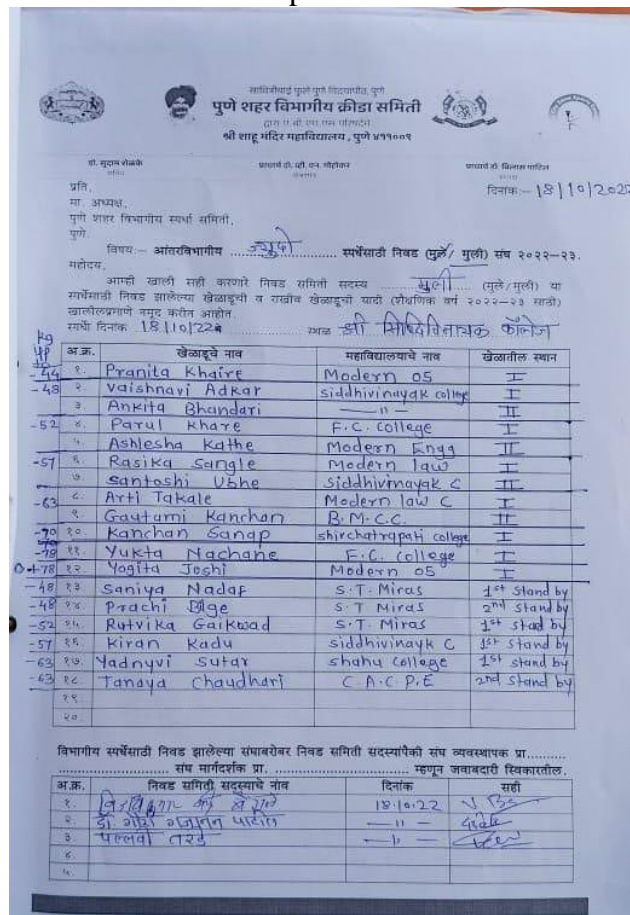 सावित्रीबाई फुले पुणे विद्यापीठ, पुणे
पुणे शहर विभागीय क्रीडा समिती
श्री शाहू मंदिर महाविद्यालय, पुणे ४११००९
डॉ. सुदाम शेळके
प्राचार्य डॉ. व्ही. एन.
प्राचार्य डॉ. विलास
दिनांक:- 18/10/2022
प्रति,
मा. अध्यक्ष,
पुणे शहर विभागीय स्पर्धा समिती,
पुणे.
विषय:- आंतरविभागीय ज्युदो स्पर्धेसाठी निवड (मुले/ मुली) संघ २०२२-२३.
महोदय,
आम्ही खाली सही करणारे निवड समिती सदस्य मुली (मुले/मुली) या
स्पर्धेसाठी निवड झालेल्या खेळाडूची व राखीव खेळाडूची यादी (शैक्षणिक वर्ष २०२२-२३ साठी)
खालीलप्रमाणे नमूद करीत आहोत.
स्पर्धा दिनांक 18/10/22 स्थळ श्री सिध्दिविनायक कॉलेज
kg
अ.क्र. खेळाडूचे नाव महाविद्यालयाचे नाव खेळातील स्थान
-44 १. Pranita Khaire Modern 05 I
-48 २. Vaishnavi Adkar siddhivinayak college I
३. Ankita Bhandari —"— II
-52 ४. Parul Khare F.C. College I
५. Ashlesha Kathe Modern Engg II
-57 ६. Rasika Sangle Modern law I
७. Santoshi Ubhe Siddhivinayak C II
-63 ८. Arti Takale Modern law C I
९. Gautami Kanchan B.M.C.C. II
-70 १०. Kanchan Sanap shirchatrapati college I
-78 ११. Yukta Nachane F.C. College I
+78 १२. Yogita Joshi Modern 05 I
-48 १३ Saniya Nadaf S.T. Miras 1st Stand by
-48 १४ Prachi S.T Miras 2nd Stand by
-52 १५. Rutvika Gaikwad S.T. Miras 1st stad by
-57 १६ Kiran Kadu Siddhivinayk C 1st stand by
-63 १७. Yadnyvi Sutar Shahu College 1st Stand by
-63 १८ Tanaya Chaudhari C.A.C.P.E 2nd Stand by
१९
२०.
विभागीय स्पर्धेसाठी निवड झालेल्या संघाबरोबर निवड समिती सदस्यांपैकी संघ व्यवस्थापक प्रा..........
.................... संघ मार्गदर्शक प्रा. .................... म्हणून जवाबदारी स्विकारतील.
अ.क्र. निवड समिती सदस्याचे नांव दिनांक सही
१. 18.10.22
२. डॉ. गौरी गजानन पाटील —"—
३. पल्लवी तरडे —"—
४.
५.